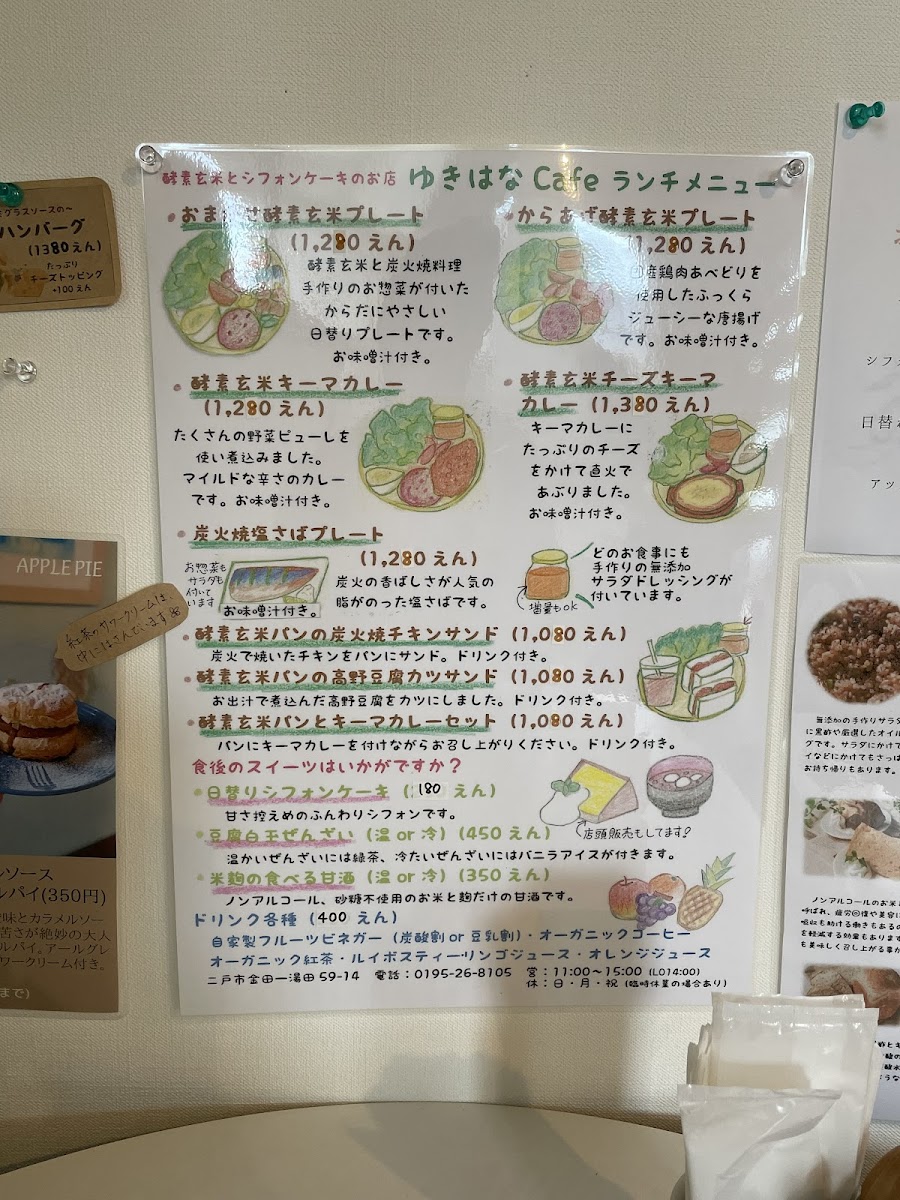 ハンバーグ
(1380えん)
たっぷり
チーズトッピング
+100えん
酵素玄米とシフォンケーキのお店 ゆきはな Cafe ランチメニュー
・おまかせ酵素玄米プレート
(1,280えん)
酵素玄米と炭火焼料理
手作りのお惣菜が付いた
からだにやさしい
日替りプレートです。
お味噌汁付き。
・からあげ酵素玄米プレート
(1,280えん)
国産鶏肉あべどりを
使用したふっくら
ジューシーな唐揚げ
です。お味噌汁付き。
・酵素玄米キーマカレー
(1,280えん)
たくさんの野菜ピューレを
使い煮込みました。
マイルドな辛さのカレー
です。お味噌汁付き。
・酵素玄米チーズキーマ
カレー (1,380えん)
キーマカレーに
たっぷりのチーズ
をかけて直火で
あぶりました。
お味噌汁付き。
・炭火焼塩さばプレート
(1,280えん)
お惣菜も
サラダも
付いて
います
炭火の香ばしさが人気の
脂がのった塩さばです。
お味噌汁付き。
どのお食事にも
手作りの無添加
サラダドレッシングが
付いています。
増量もOK
・酵素玄米パンの炭火焼チキンサンド (1,080えん)
炭火で焼いたチキンをパンにサンド。ドリンク付き。
・酵素玄米パンの高野豆腐カツサンド (1,080えん)
お出汁で煮込んだ高野豆腐をカツにしました。ドリンク付き。
・酵素玄米パンとキーマカレーセット (1,080えん)
パンにキーマカレーを付けながらお召し上がりください。ドリンク付き。
食後のスイーツはいかがですか?
・日替りシフォンケーキ (180えん)
甘さ控えめのふんわりシフォンです。
店頭販売もしてます?
・豆腐白玉ぜんざい (温 or 冷) (450えん)
温かいぜんざいには緑茶、冷たいぜんざいにはバニラアイスが付きます。
・米麹の食べる甘酒 (温 or 冷) (350えん)
ノンアルコール、砂糖不使用のお米と麹だけの甘酒です。
ドリンク各種 (400えん)
自家製フルーツビネガー (炭酸割 or 豆乳割)・オーガニックコーヒー
オーガニック紅茶・ルイボスティー・リンゴジュース・オレンジジュース
二戸市金田一湯田59-14 電話:0195-26-8105 営:11:00~15:00 (LO14:00)
休:日・月・祝 (臨時休業の場合あり)
APPLE PIE
紅茶のサワークリームは、
中にはさんでいます
ルソース
ルパイ(350円)
酸味とカラメルソー
苦さが絶妙の大人
ルパイ。アールグレ
ワークリーム付き。
まで)
シフ
日替
アッ
無添加の手作りサラダ
に黒酢や厳選したオイル
グです。サラダにかけて
イなどにかけてもさっぱ
お持ち帰りもあります。
ノンアルコールのお米
呼ばれ、疲労回復や美容に
吸収も助ける働きもあるの
を軽減する効果もあります
も美味しく召し上がる事が